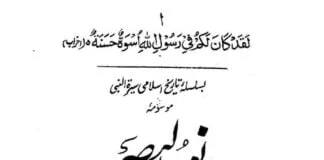 ۱
لَقَدْ كَانَ لَكُمْ فِي رَسُولِ اللهِ اُسْوَةٌ حَسَنَةٌ ٥ (احزاب)
بسلسلہ تاریخ اسلامی سیرۃ النبی
موسومہ